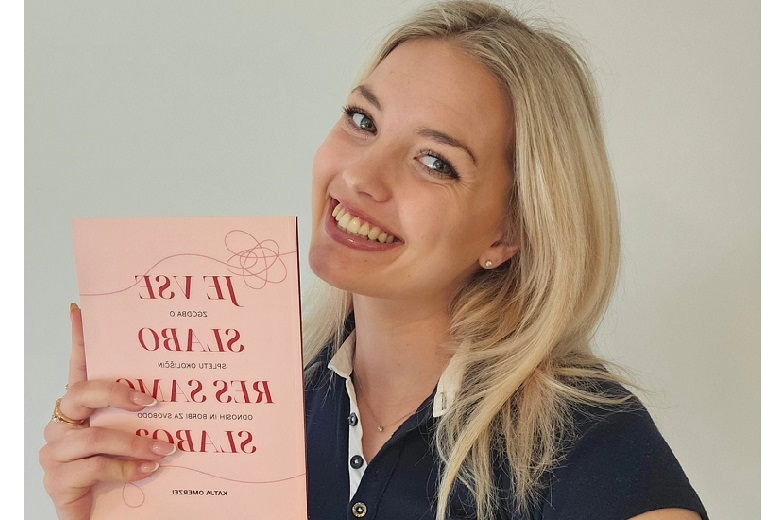 JE VSE
ZGODBA O
SLABO
SPLETU OKOLIŠČIN
RES SAMO
ODNOSIH IN BORBI ZA SVOBODO
SLABO?
KATJA OMERZEL